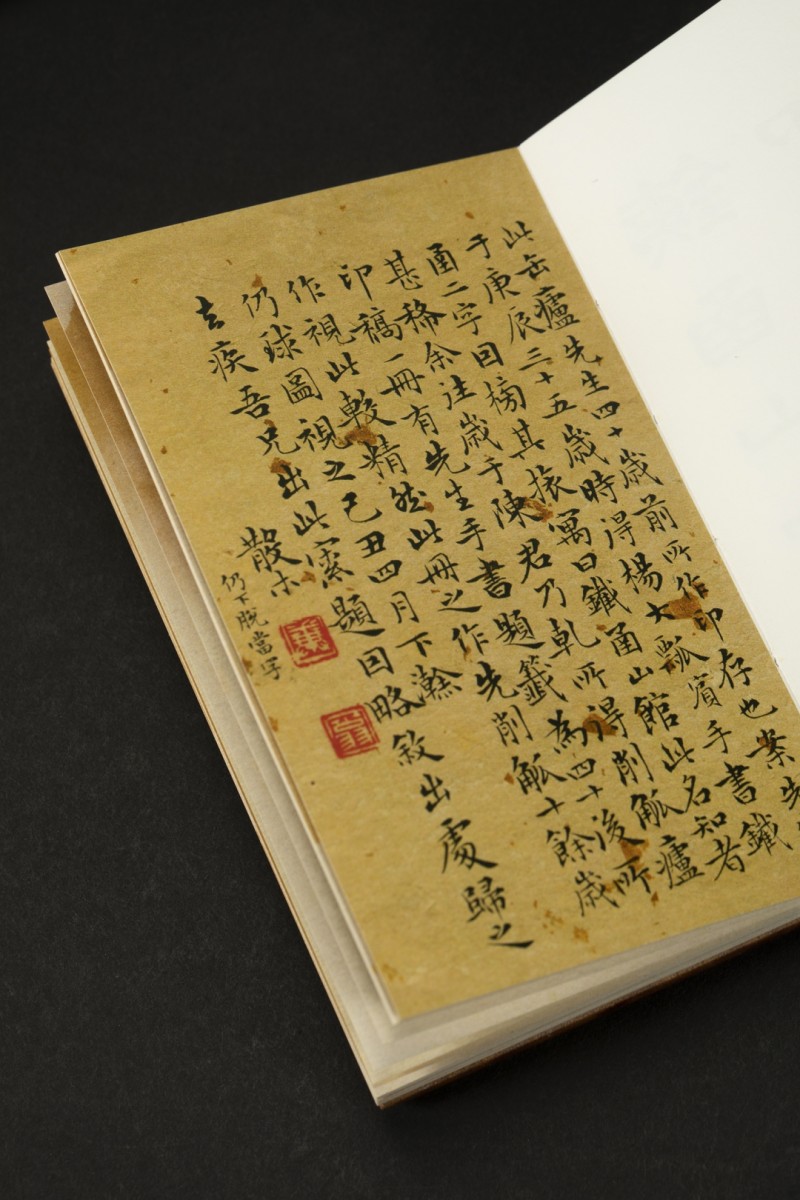 此缶廬先生四十歲前所作印存也案先
于庚辰三十五歲時得楊大瓢賓手書鐵
函二字因榜其寓曰鐵函山館此名知者
甚稀余往歲于陳君乃乾所得削觚廬
印稿一冊有先生手書題籤為四十後所
作視此較精然此冊之作先削觚十餘歲
仍球圖視之己丑四月下澣
去疾吾兄出此索題因略敘出處歸之
散木
仍下脫當字